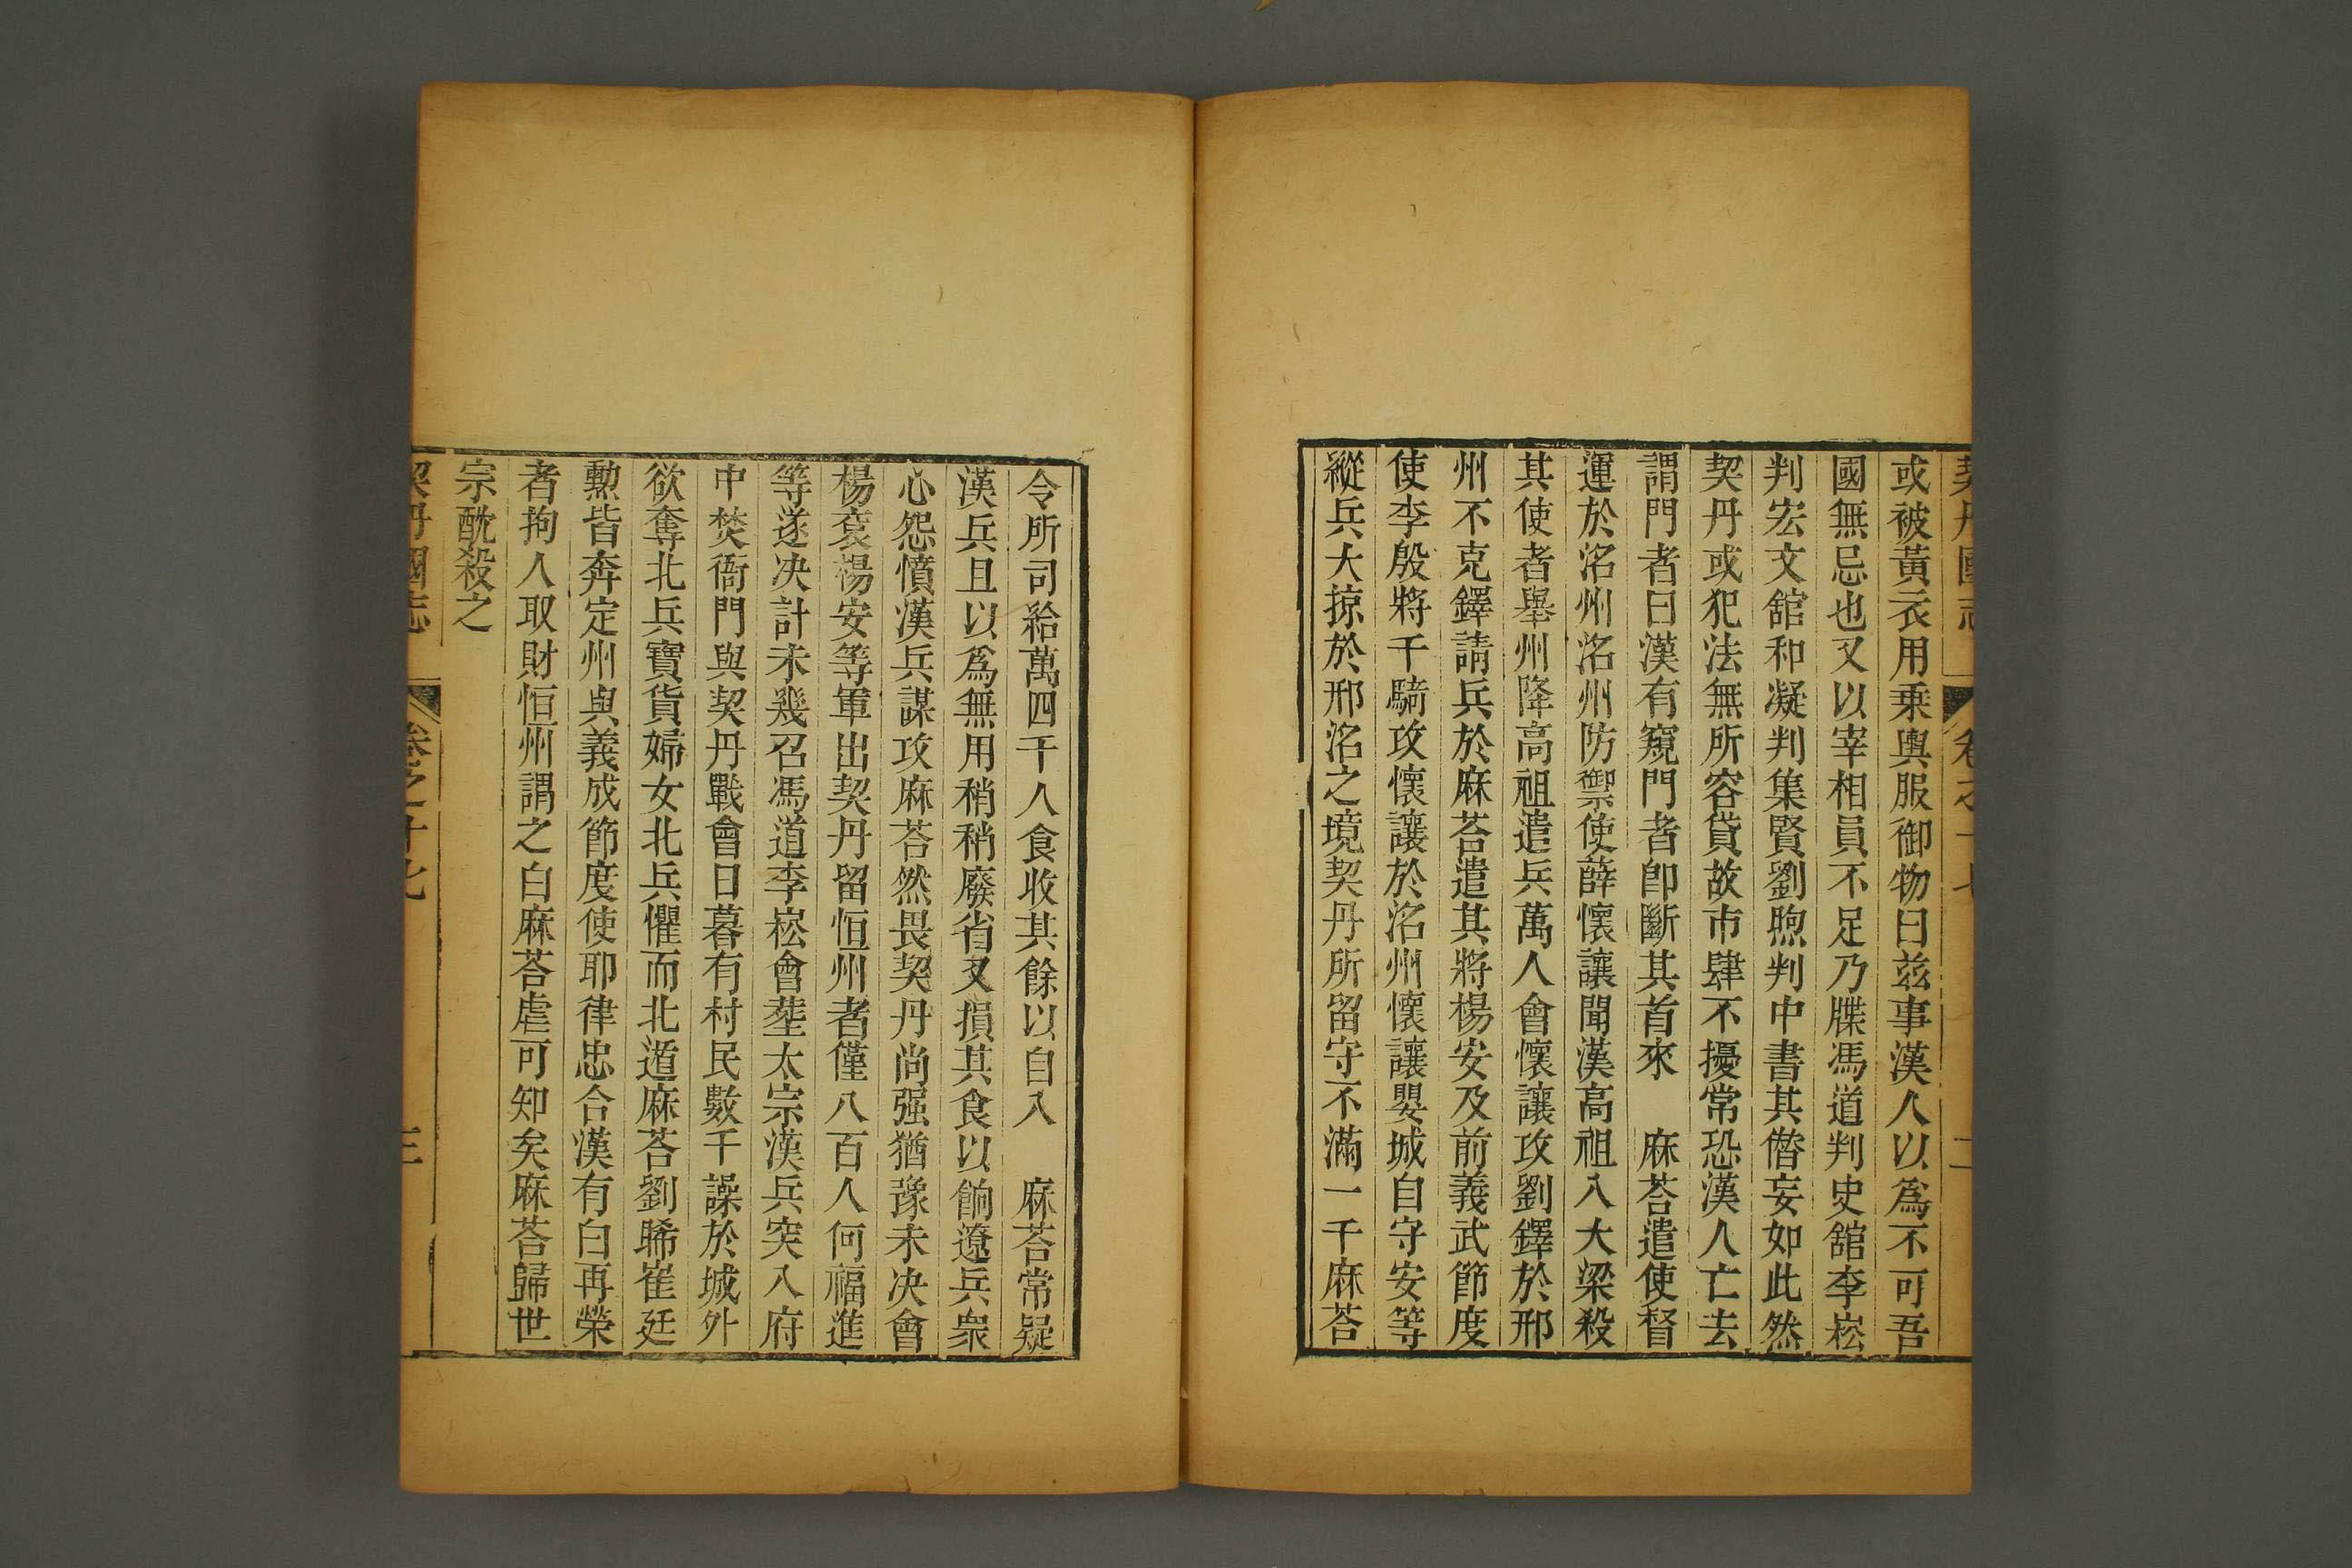 契丹國志 卷之十七 二
或被黃衣用乗輿服御物曰兹事漢人以爲不可吾
國無忌也又以宰相員不足乃牒馮道判史舘李崧
判宏文舘和凝判集賢劉煦判中書其僭妄如此然
契丹或犯法無所容貸故市肆不擾常恐漢人亡去
謂門者曰漢有窺門者卽斷其首來　麻荅遣使督
運於洺州洺州防禦使薛懷讓聞漢高祖入大梁殺
其使者舉州降高祖遣兵萬人會懷讓攻劉鐸於邢
州不克鐸請兵於麻荅遣其將楊安及前義武節度
使李殷將千騎攻懷讓於洺州懷讓嬰城自守安等
縱兵大掠於邢洺之境契丹所留守不滿一千麻荅
令所司給萬四千人食收其餘以自入　麻荅常疑
漢兵且以爲無用稍稍廢省叉損其食以餉遼兵衆
心怨憤漢兵謀攻麻荅然畏契丹尚强猶豫未决會
楊袞楊安等軍出契丹留恒州者僅八百人何福進
等遂决計未幾召馮道李崧會塟太宗漢兵突入府
中焚衙門與契丹戰會日暮有村民數千譟於城外
欲奪北兵寶貨婦女北兵懼而北遁麻荅劉晞崔廷
勲皆奔定州與義成節度使耶律忠合漢有白再榮
者拘人取財恒州謂之白麻荅虐可知矣麻荅歸世
宗酖殺之
契丹國志 卷之十七 三